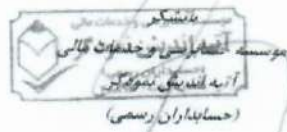 بایشیگر
موسسه حسابرسی و خدمات مالی
آتیه اندیش نمودگر
(حسابداران رسمی)